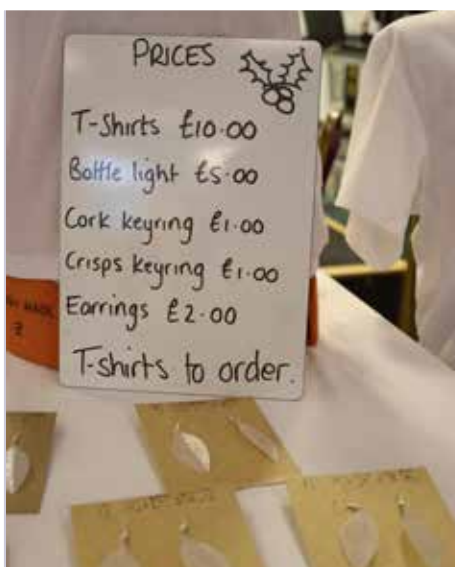 PRICES
T-Shirts £10.00
Bottle light £5.00
Cork keyring £1.00
Crisps keyring £1.00
Earrings £2.00
T-shirts to order.